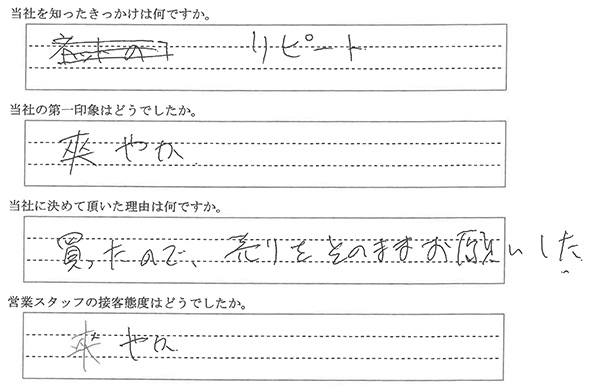 当社を知ったきっかけは何ですか。
リピート
当社の第一印象はどうでしたか。
爽やか
当社に決めて頂いた理由は何ですか。
買ったので、売りもそのままお願いした
営業スタッフの接客態度はどうでしたか。
爽やか